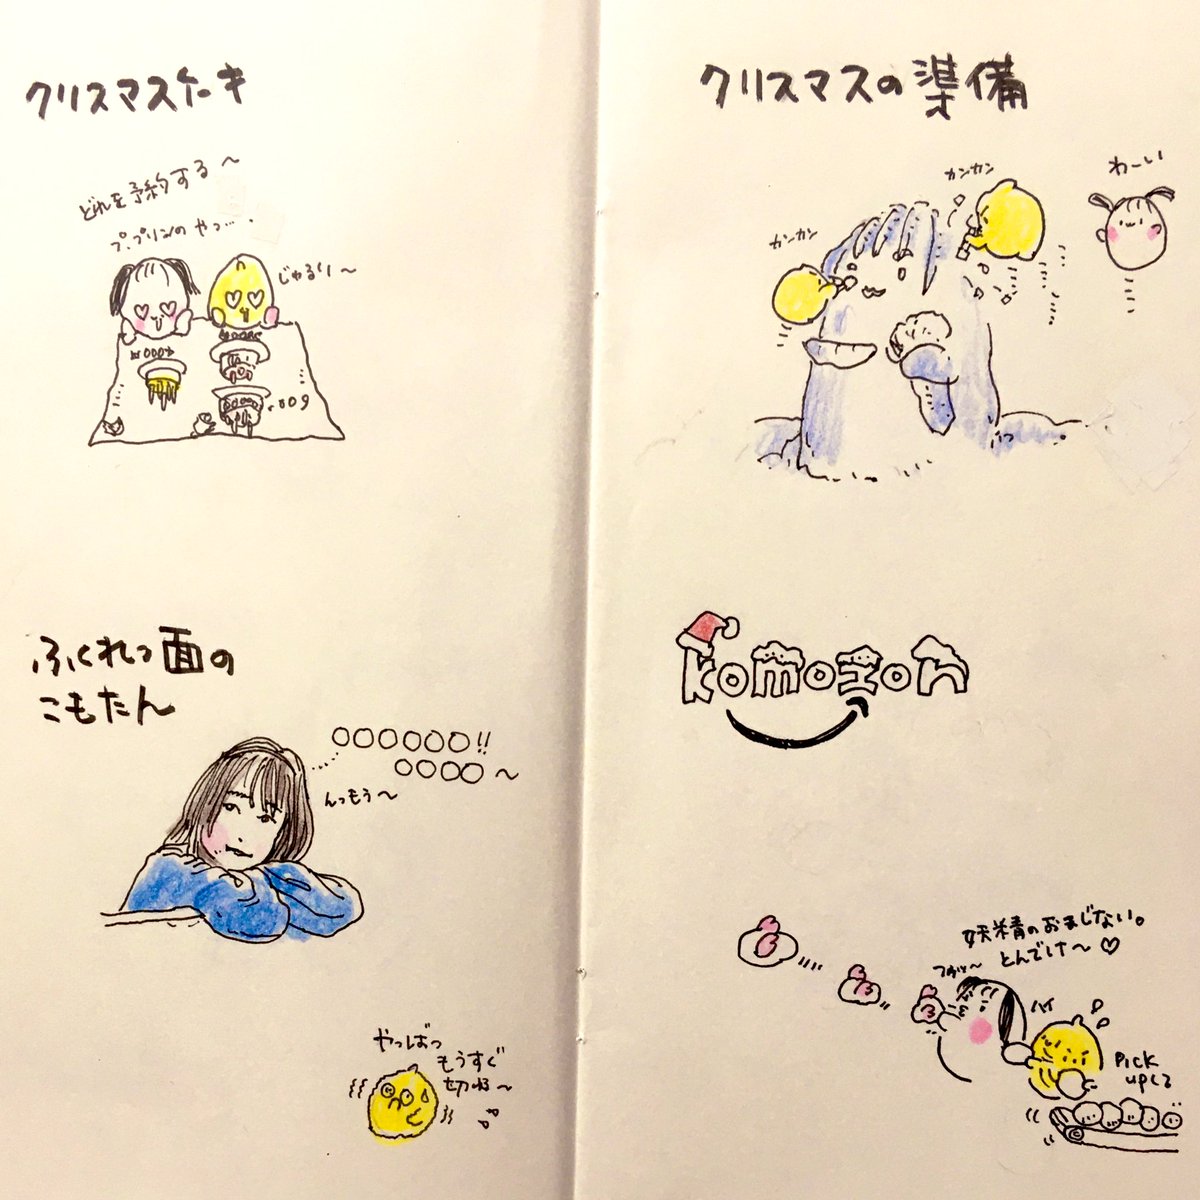 クリスマスケーキ
どれを予約する〜
プ、プリンのやつ…
じゅるり〜
ふくれっ面の
こもたん
○○○○○○!!
○○○○〜
んっもう〜
やっばっ
もうすぐ
切れる〜
クリスマスの準備
カンカン
わーい
カンカン
komozon
妖精のおまじない。
とんでけ〜♡
ハイ
PICK
UPくる